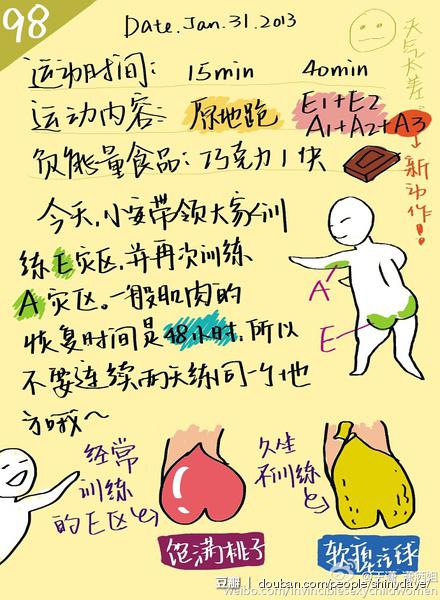 98
Date. Jan. 31. 2013
天气太差。
运动时间: 15min 40min
运动内容: 原地跑 E1+E2
A1+A2+A3
新动作!
负能量食品: 巧克力1块
今天,小安带领大家训
练E灾区,并再次训练
A灾区。一般肌肉的
恢复时间是48小时,所以
不要连续两天练同一个地
方哦~
A
E
经常
训练
的E区
久坐
不训练
饱满桃子
豆瓣 | douban.com/people/shinydaye/
weibo.com/invinciblesexychildwomen